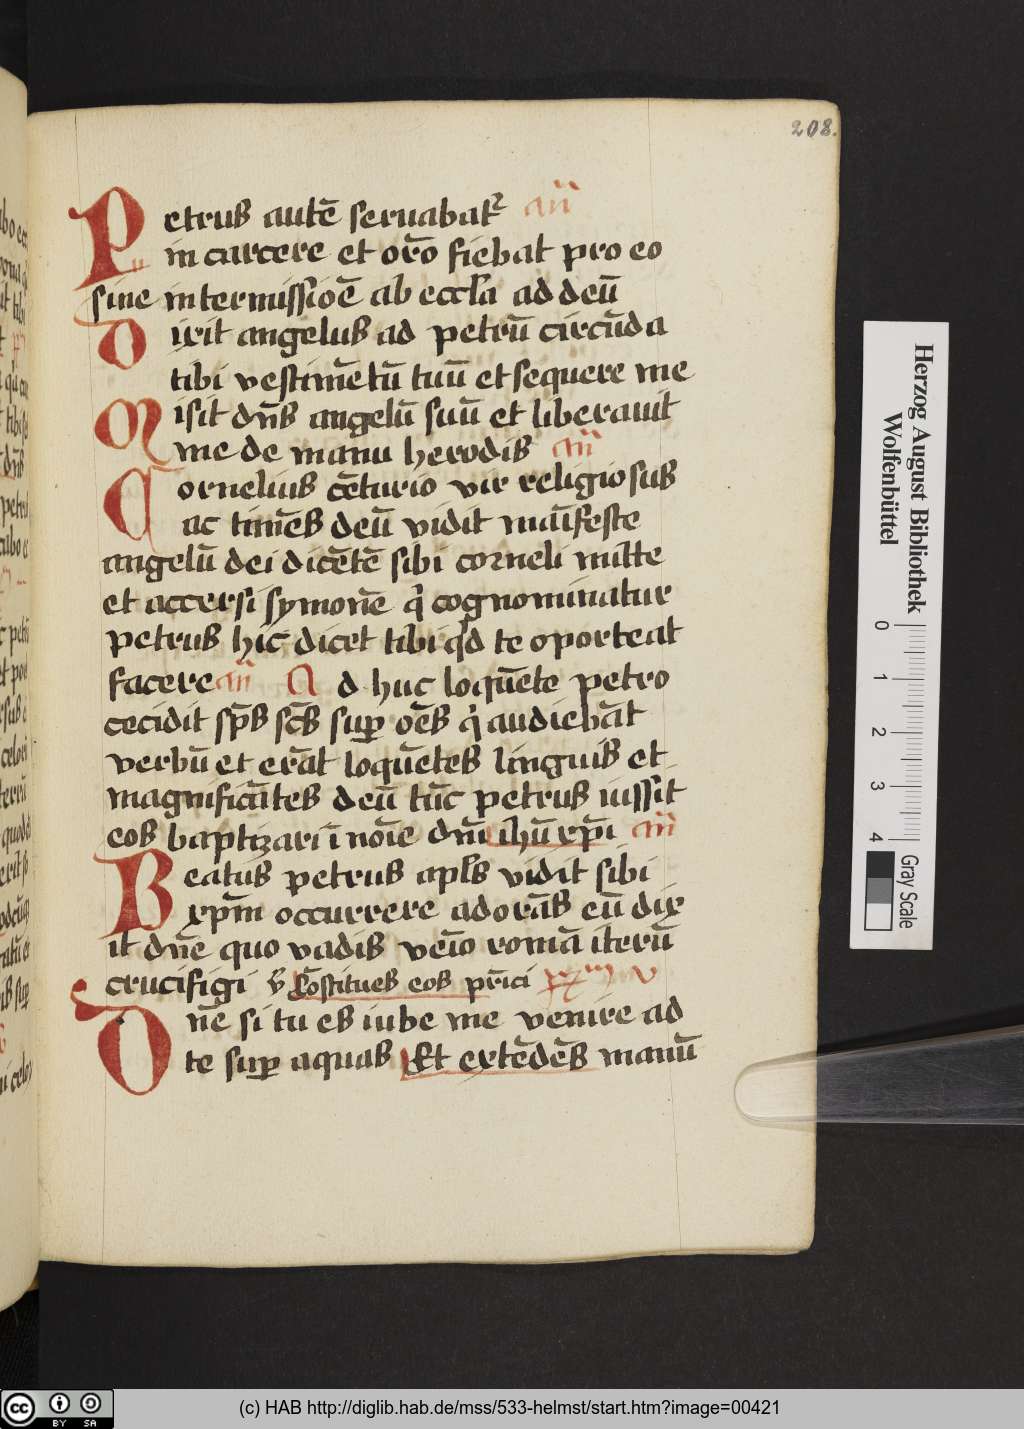 208.
Petrus autē seruabat᷑ añ
in carcere et orō fiebat pro eo
sine intermissioē ab eccl̄a ad deū
Dixit angelus ad petrū circūda
tibi vestimētū tuū et sequere me
Misit dn̄s angelū suū et liberauit
me de manu herodis añ
Cornelius cēturio vir religiosus
ac timēs deū vidit maīfeste
angelū dei dicētē sibi corneli mitte
et accersi symonē q̇ cognominatur
petrus hic dicet tibi qd̄ te oporteat
facere añ Ad huc loquēte petro
cecidit sp̄s sc̄s suꝑ oēs q̇ audiebāt
verbū et erāt loquētes linguis et
magnificātes deū tūc petrus iussit
eos baptizari ī noīe dn̄i ih̄u xp̄i añ
Beatus petrus apl̄s vidit sibi
xp̄m occurrere adorās eū dix
it dn̄e quo vadis veīo romā iterū
crucifigi v̄ Cōstitues eos prīci
Dn̄e si tu es iube me venire ad
te suꝑ aquas Et extēdēs manū
Herzog August Bibliothek
Wolfenbüttel
0 1 2 3 4
Gray Scale
(c) HAB http://diglib.hab.de/mss/533-helmst/start.htm?image=00421
cc BY SA